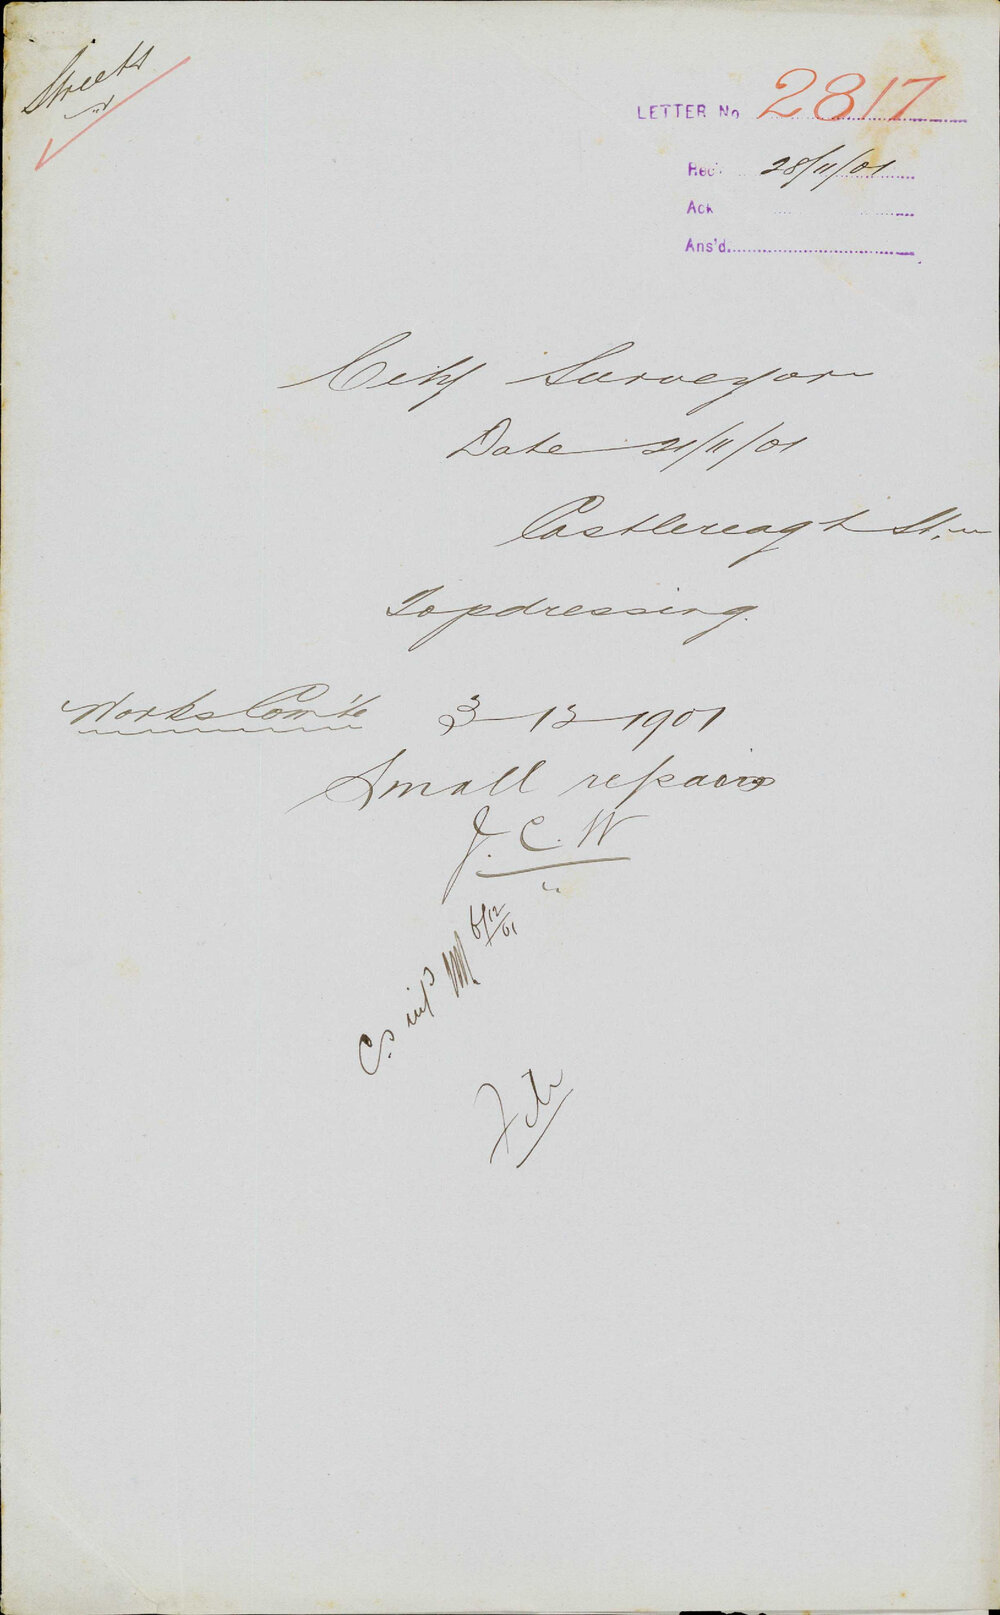 Streets
LETTER No 2817
Rec. 28/11/01
Ack
Ans'd.
City Surveyor
Date 21/11/01
Castlereagh St.
Topdressing.
Works Com'te 3-12-1901
Small repairs
J. C. W
C.S. inf'd 6/12/01
File